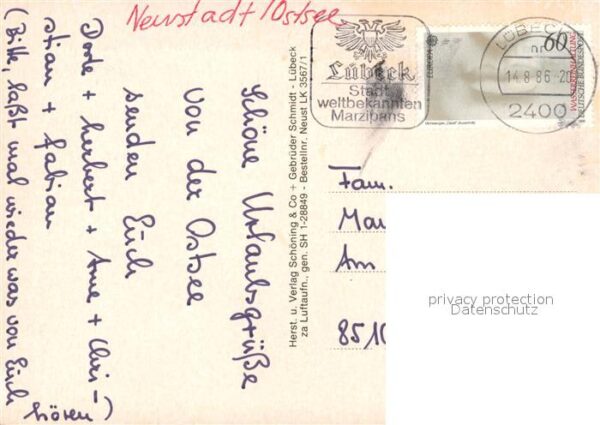 Neustadt/Ostsee
Schöne Urlaubsgrüße
von der Ostsee
senden Euch
Dorte + Herbert + Arne + Chri-
stian + Fabian
(Bitte, laßt mal wieder was von Euch
hören)
Herst. u. Verlag Schöning & Co + Gebrüder Schmidt - Lübeck
za Luftaufn., gen. SH 1-28849 - Bestellnr. Neust LK 3567/1
Lübeck
Stadt
weltbekannten
Marzipans
EUROPA
60
DEUTSCHE BUNDESPOST
LÜBECK
14.8.86-20
2400
Fam.
Am
privacy protection
Datenschutz